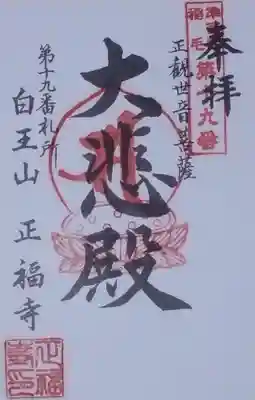 奉拝
正観世音菩薩
大悲殿
第十九番札所
白王山 正福寺